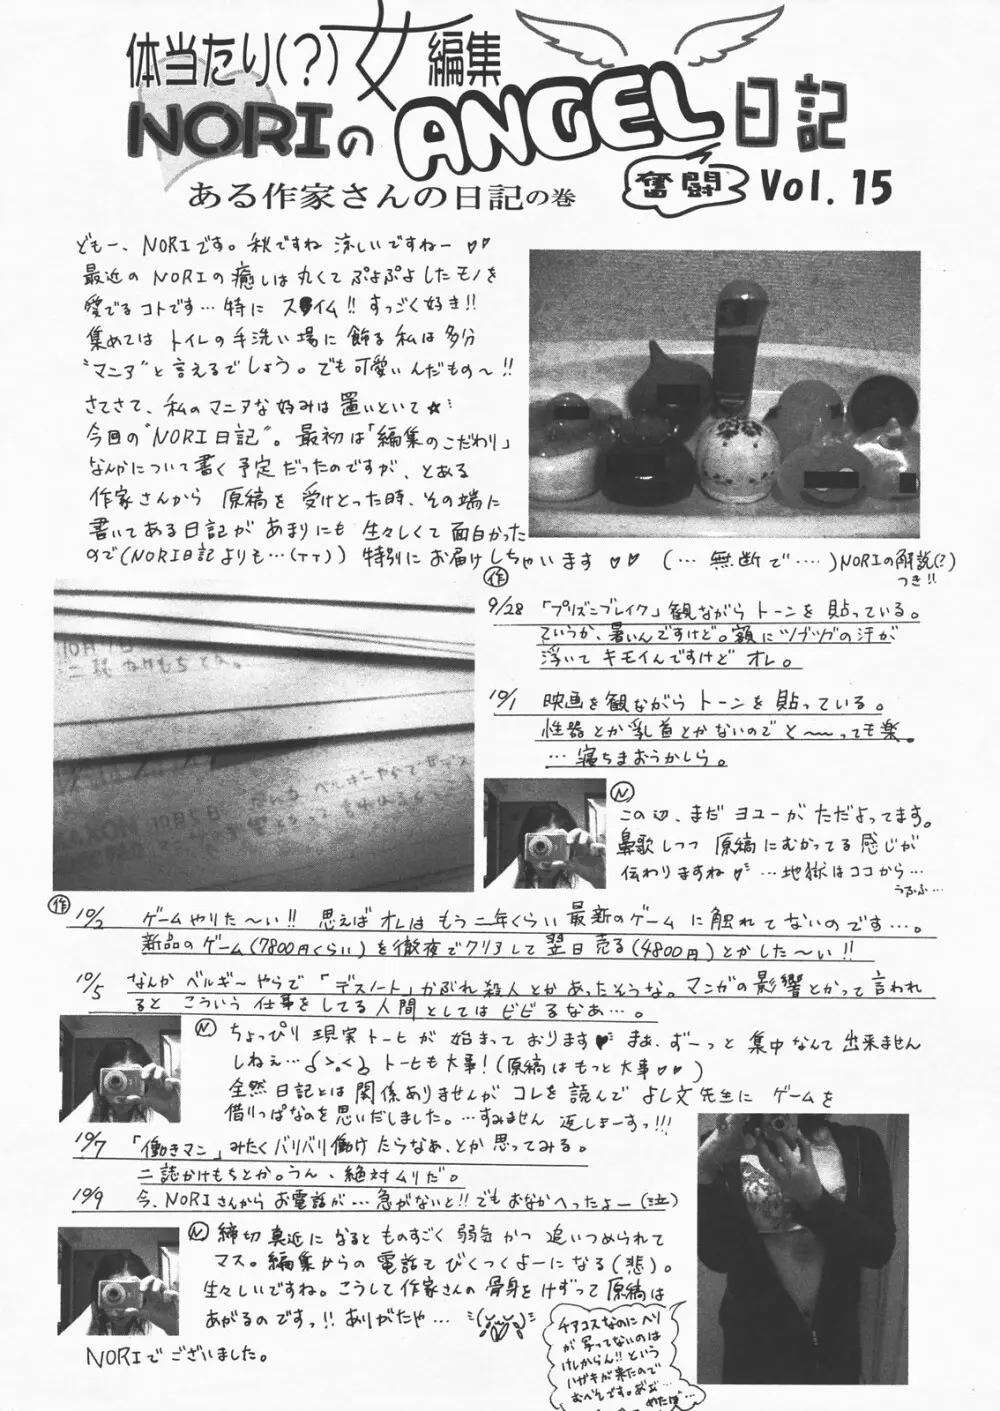 体当たり(?)女編集
NORIのANGEL日記
ある作家さんの日記の巻
奮闘
Vol. 15
どもー、NORIです。秋ですね 涼しいですねー♡♡
最近の NORIの癒しは丸くて ぷよぷよしたモノを
愛でるコトです…特に ス●イム!! すっごく好き!!
集めては トイレの手洗い場に 飾る私は多分
"マニア"と言えるでしょう。でも可愛いんだもの〜!!
さてさて、私のマニアな好みは置いといて☆
今回の"NORI日記"。最初は「編集のこだわり」
なんかについて書く予定だったのですが、とある
作家さんから 原稿を 受けとった時、その端に
書いてある日記が あまりにも 生々しくて 面白かった
ので(NORI日記よりも…(TT)) 特別に お届けしちゃいます ♡♡ (… 無断で ‥‥)NORIの解説(?)
つき!!
作
9/28 「プリズンブレイク」観ながら トーンを 貼っている。
ていうか、暑いんですけど。額にツブツブの汗が
浮いて キモイんですけど オレ。
10/1 映画を観ながら トーンを 貼っている。
性器とか乳首とかないので と〜〜っても楽。
… 寝ちまおうかしら。
二誌かけもちとな。
MAXON 10月5日
N
この辺、まだ ヨユーが ただよってます。
鼻歌しつつ 原稿にむかってる 感じが
伝わりますね♡ …地獄はココから…
うふふ…
作
10/2 ゲームやりた〜い!! 思えば オレは もう二年くらい 最新のゲーム に触れてないのです…。
新品のゲーム(7800円くらい)を徹夜でクリアして 翌日 売る(4800円)とかした〜い!!
10/5 なんか ベルギーやらで 「デスノート」かぶれ殺人とか あったそうな。マンガの影響とかって言われ
ると こういう 仕事を してる 人間 としては ビビるなあ…。
N ちょっぴり 現実トーヒが 始まって おります♡ まぁ、ずーっと 集中なんて 出来ません
しねぇ… トーヒも大事!(原稿はもっと大事♡♡)
全然 日記とは 関係ありませんが コレを 読んで よし文先生に ゲームを
借りっぱなのを思いだしました。…すみません 返しまーすっ!!!
10/7 「働きマン」みたく バリバリ働け たらなあ、とか 思ってみる。
二誌かけもちとか。うん、絶対ムリだ。
10/9 今、NORIさんから お電話が… 急がないと!! でも おなかへったよー(泣)
N 締切真近に なると ものすごく 弱気 かつ 追いつめられて
マス。編集からの 電話で びくつくよーになる(悲)。
生々しいですね。こうして作家さんの 骨身を けずって 原稿は
あがるのです っ!! ありがたや…
NORIで ございました。
チアコスなのにヘソ
が 写ってないのは
けしからん!! という
ハガキが来たので
おへそです。